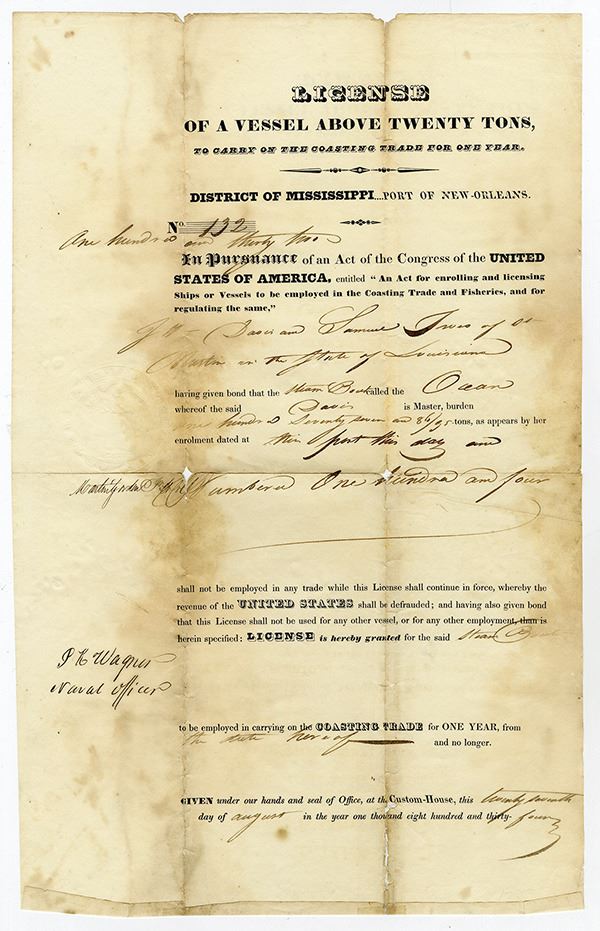 LICENSE
OF A VESSEL ABOVE TWENTY TONS,
TO CARRY ON THE COASTING TRADE FOR ONE YEAR.
DISTRICT OF MISSISSIPPI....PORT OF NEW-ORLEANS.
No. 132
One hundred and thirty two
In Pursuance of an Act of the Congress of the UNITED
STATES OF AMERICA, entitled "An Act for enrolling and licensing
Ships or Vessels to be employed in the Coasting Trade and Fisheries, and for
regulating the same,"
Davis and Samuel Ives of St
Martin in the State of Louisiana
having given bond that the Steam Boat called the Ocean
whereof the said Davis is Master, burden
one hundred Seventy seven and 36/95 tons, as appears by her
enrolment dated at this port this day and
Numbered One hundred and four
shall not be employed in any trade while this License shall continue in force, whereby the
revenue of the UNITED STATES shall be defrauded; and having also given bond
that this License shall not be used for any other vessel, or for any other employment, than is
herein specified; LICENSE is hereby granted for the said Steam Boat
P K Wagner
Naval officer
to be employed in carrying on the COASTING TRADE for ONE YEAR, from
the date hereof and no longer.
GIVEN under our hands and seal of Office, at the Custom-House, this twenty seventh
day of august in the year one thousand eight hundred and thirty-four